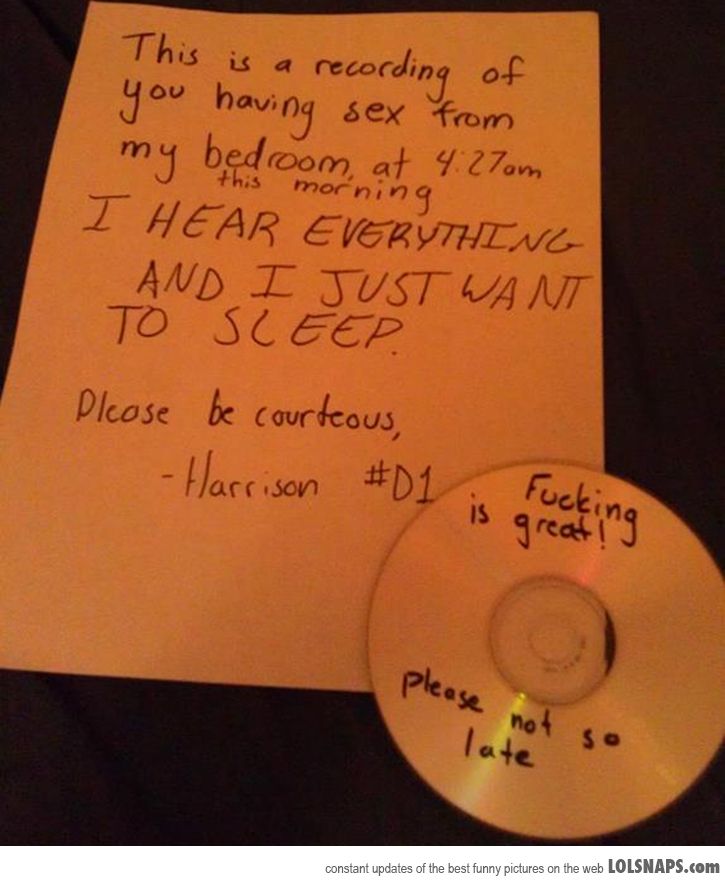 This is a recording of
you having sex from
my bedroom, at 4:27am
this morning
I HEAR EVERYTHING
AND I JUST WANT
TO SLEEP.
Please be courteous,
-Harrison #D1
Fucking
is great!
please not so
late
constant updates of the best funny pictures on the web LOLSNAPS.com